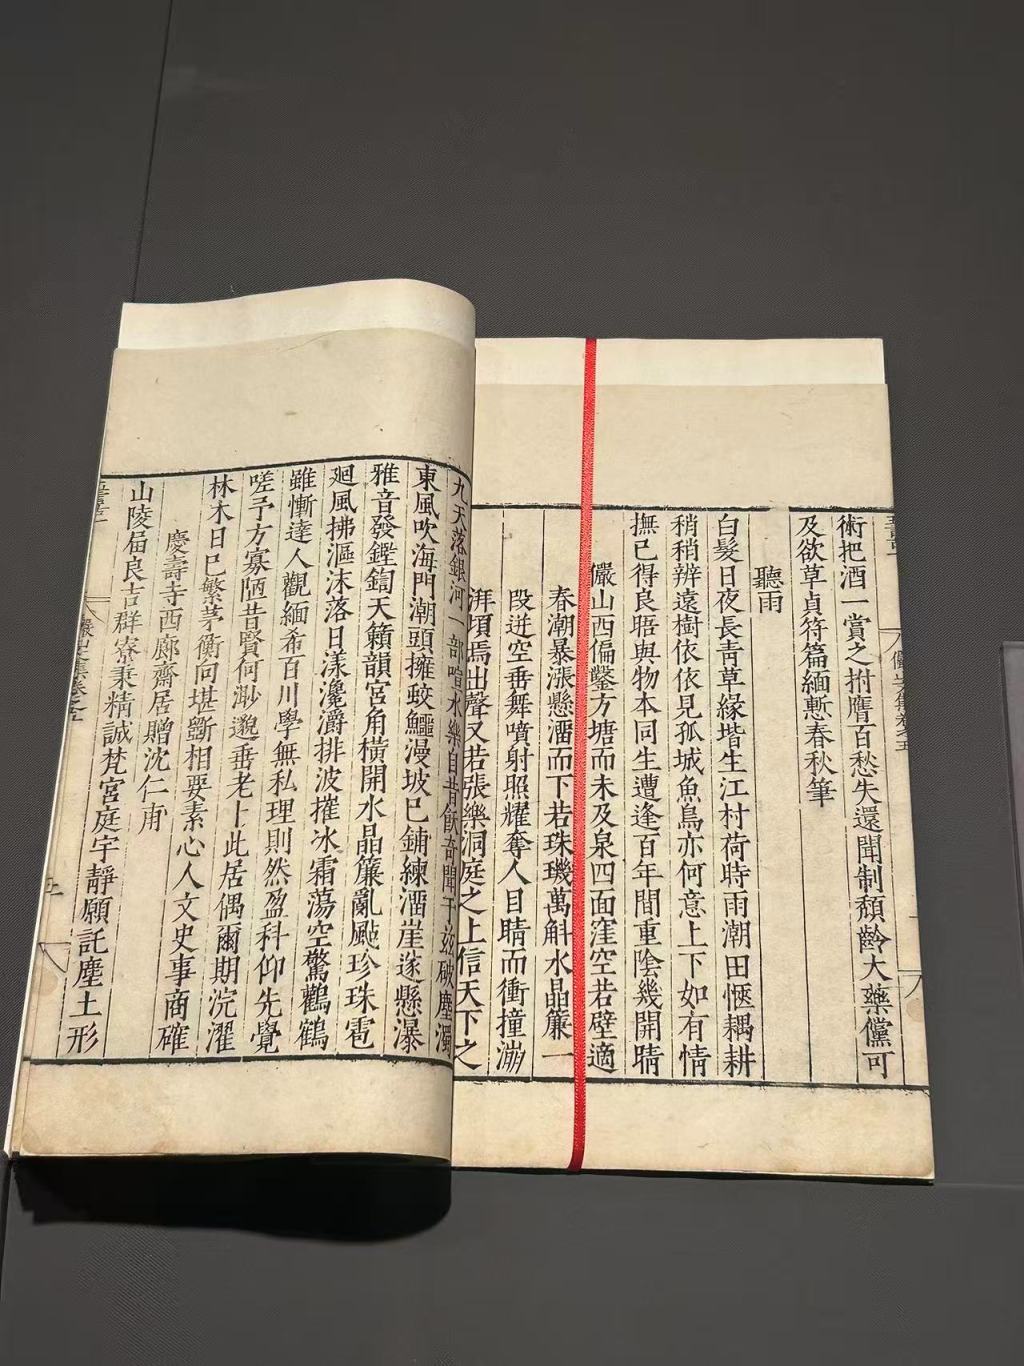 術把酒一賞之拊膺百愁失還聞制頹齡大藥儻可
及欲草貞符篇緬慙春秋筆
聽雨
白髮日夜長靑草緣堦生江村荷時雨潮田愜耦耕
稍稍辨遠樹依依見孤城魚鳥亦何意上下如有情
撫己得良晤與物本同生遭逢百年間重陰幾開晴
儼山西偏鑿方塘而未及泉四面窪空若壁適
春潮暴漲懸溜而下若珠璣萬斛水晶簾一
段迸空垂舞噴射照耀奪人目睛而衝撞漰
湃頃焉出聲又若張樂洞庭之上信天下之
九天落銀河一部喧水樂自昔飲奇聞于兹破塵濁
東風吹海門潮頭擁蛟鱷漫坡已鋪練溜崖遂懸瀑
雅音發鏗鍧天籟韻宮角橫開水晶簾亂颭珍珠雹
廻風拂漚沫落日漾瀺灂排波摧冰霜蕩空驚鸛鶴
雖慚達人觀緬希百川學無私理則然盈科仰先覺
嗟予方寡陋昔賢何渺邈垂老卜此居偶爾期浣濯
林木日已繁茅衡向堪斲相要素心人文史事商確
慶壽寺西廊齋居贈沈仁甫
山陵届良吉群寮秉精誠梵宮庭宇靜願託塵土形
儼山文集卷之五
五